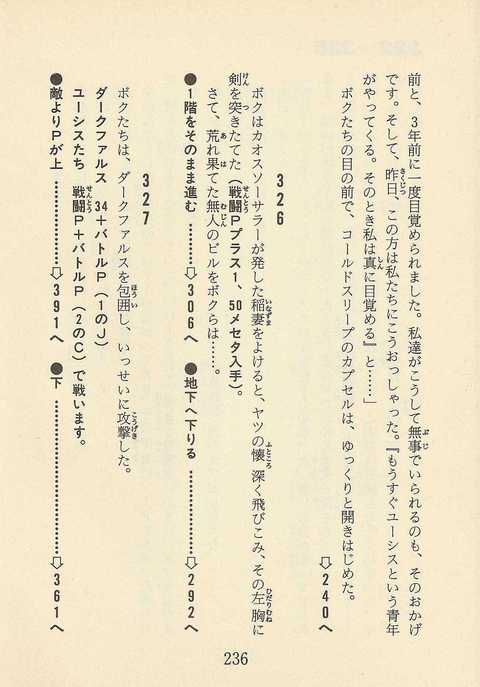 前と、3年前に一度目覚められました。私達がこうして無事でいられるのも、そのおかげ
です。そして、昨日、この方は私たちにこうおっしゃった。『もうすぐユーシスという青年
がやってくる。そのとき私は真に目覚める』と……」
ボクたちの目の前で、コールドスリープのカプセルは、ゆっくりと開きはじめた。
⇨240へ
326
ボクはカオスソーサラーが発した稲妻をよけると、ヤツの懐深く飛びこみ、その左胸に
剣を突きたてた(戦闘Pプラス1、50メセタ入手)。
さて、荒れ果てた無人のビルをボクらは……。
●1階をそのまま進む………⇨306へ ●地下へ下りる………⇨292へ
327
ボクたちは、ダークファルスを包囲し、いっせいに攻撃した。
ダークファルス 34+バトルP(1のJ)
ユーシスたち 戦闘P+バトルP(2のC)で戦います。
●敵よりPが上………⇨391へ ●下………⇨361へ
236